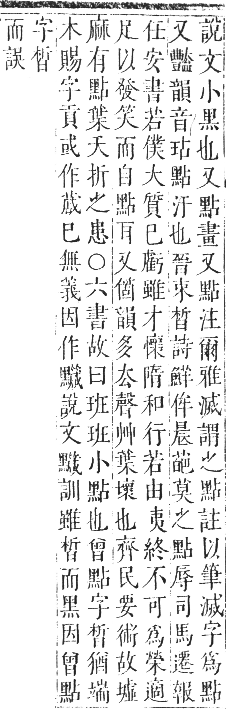 說文小黑也又點畫又點注爾雅滅謂之點註以筆滅字爲點
又豔韻音玷點汙也晉束晳詩鮮侔晨葩莫之點辱司馬遷報
任安書若僕大質已虧雖才懷隋和行若由夷終不可爲榮適
足以發笑而自點耳又箇韻多去聲艸葉壞也齊民要術故墟
麻有點葉夭折之患○六書故曰班班小點也曾點字晳猶端
木賜字貢或作蒧已無義因作黬說文黬訓雖晳而黑因曾點
字晳
而誤